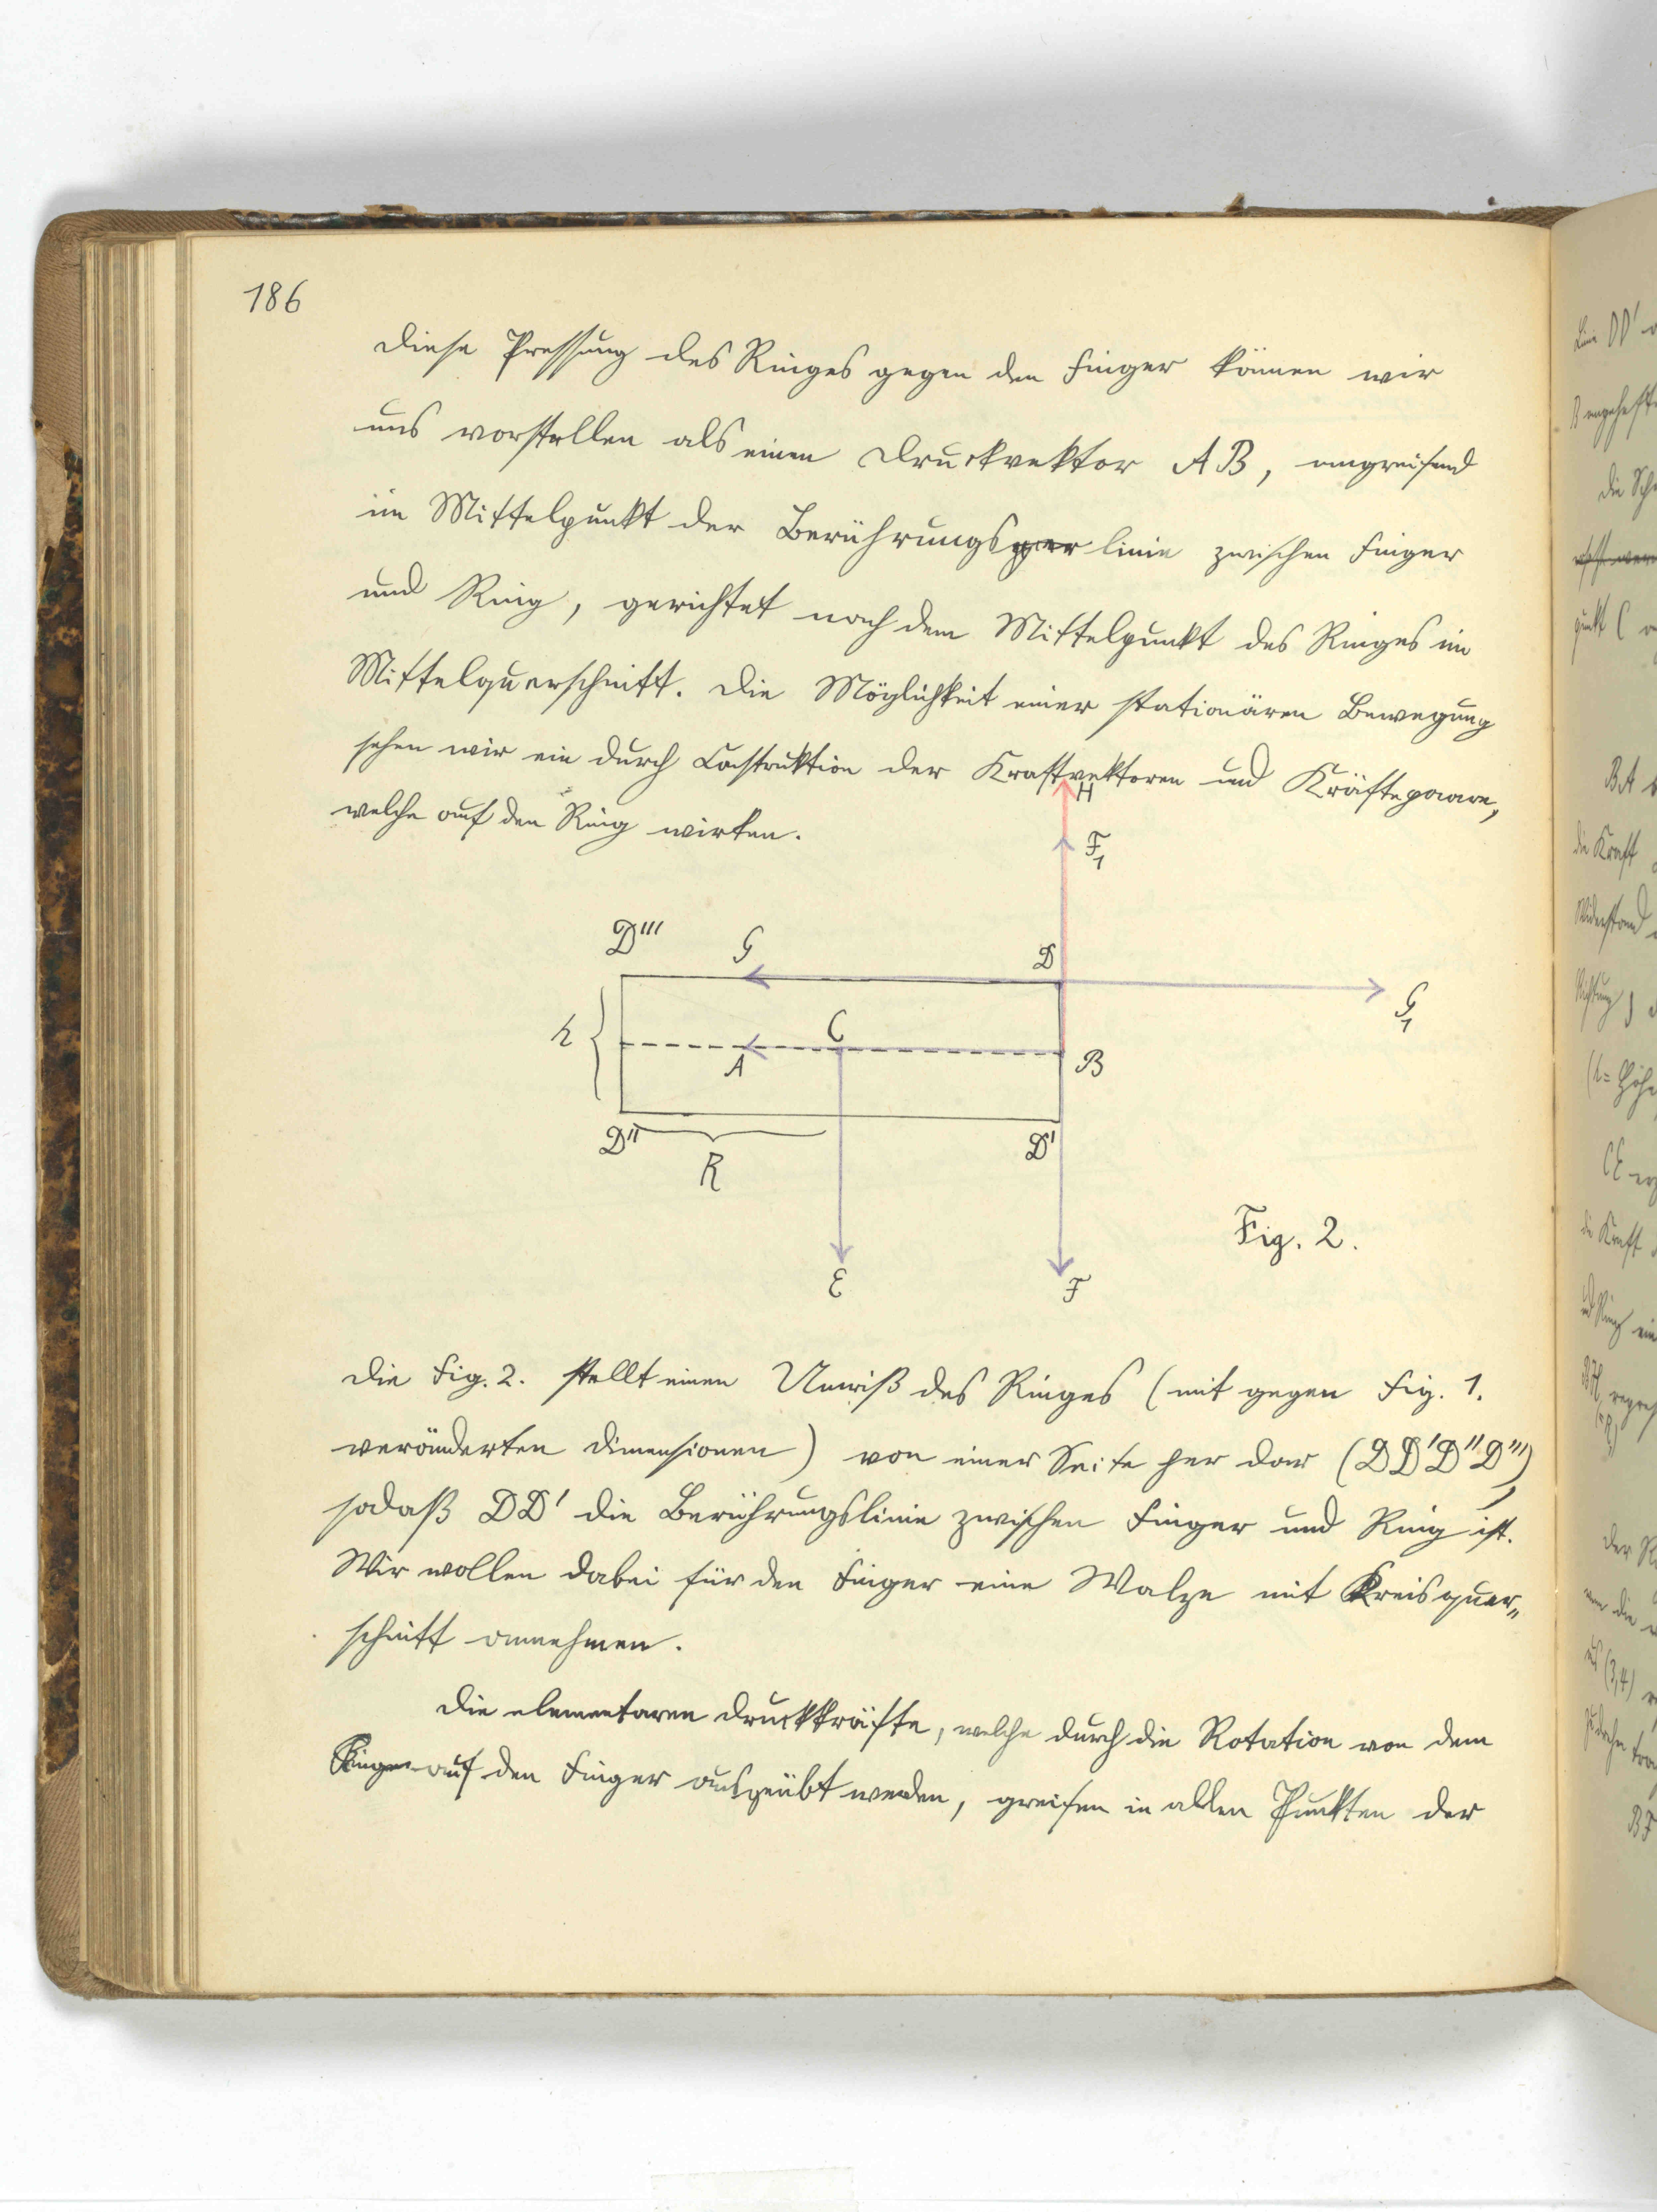 186
Diese Pressung des Ringes gegen den Finger können wir
uns vorstellen als einen Druckvektor AB, angreifend
im Mittelpunkt der Berührungs linie zwischen Finger
und Ring, gerichtet nach dem Mittelpunkt des Ringes im
Mittelquerschnitt. Die Möglichkeit einer stationären Bewegung
sehen wir ein durch Constuktion der Kraftvektoren und Kräftepaare,
welche auf den Ring wirken.
H
F₁
D''' G D
G₁
h C
A B
D'' D'
R
Fig. 2.
E F
Die Fig. 2. stellt einen Umriß des Ringes (mit gegen Fig. 1.
veränderten Dimensionen) von einer Seite her dar (DD'D''D'''),
sodaß DD' die Berührungslinie zwischen Finger und Ring ist.
Wir wollen dabei für den Finger eine Walze mit Kreisquer„
schnitt annehmen.
Die elementaren Druckkräfte, welche durch die Rotation von dem
Ringe auf den Finger ausgeübt werden, greifen in allen Punkten der
Linie DD'
B angeheft
die Sch
punkt C
BA
die Kraft
Widerstand
Richtung
(h = Höhe
CE
die Kraft
und Ring ein
der
man die
(3,4)
BF